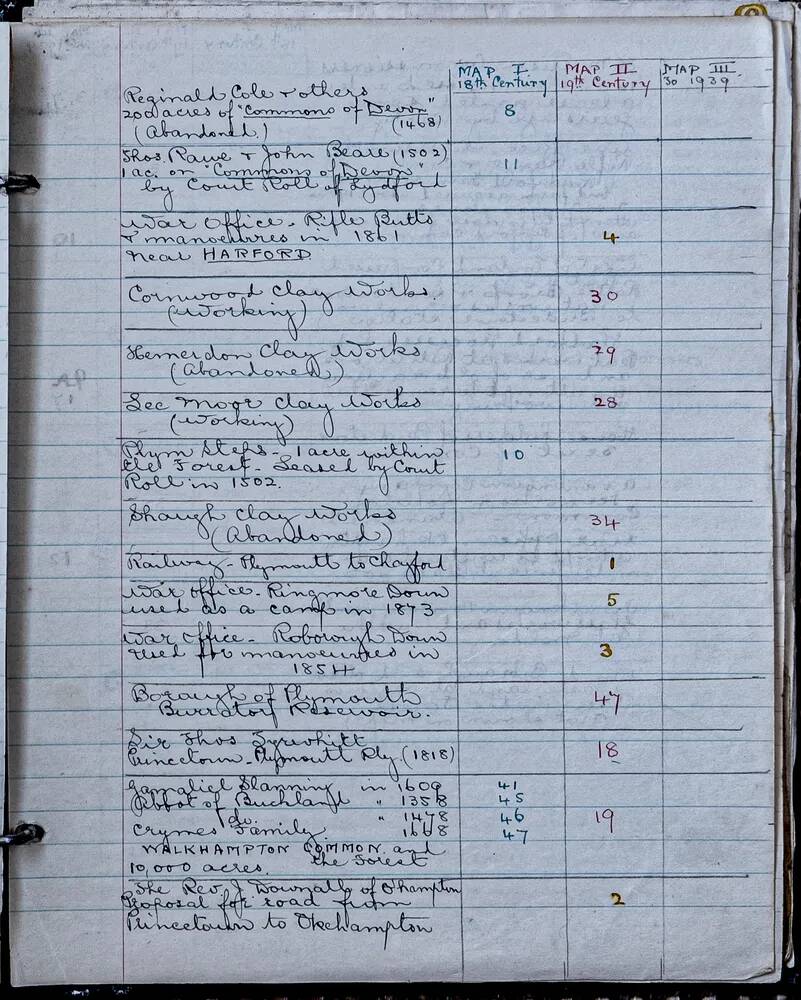 MAP I MAP II MAP III
18th Century 19th Century to 1939
Reginald Cole & others
200 acres of "Commons of Devon" 8
(Abandoned.) (1468)
Thos. Rawe & John Beare (1502)
1 ac. on "Commons of Devon" 11
by Court Roll of Lydford
War Office - Rifle Butts
& manoeuvres in 1861 4
near HARFORD
Cornwood Clay Works. 30
(Working)
Hemerdon Clay Works 29
(Abandoned)
Lee Moor Clay Works 28
(Working)
Plym Steps - 1 acre within 10
the Forest - Leased by Court
Roll in 1502.
Shaugh Clay Works 34
(Abandoned)
Railway - Plymouth to Chagford 1
War Office - Ringmore Down 5
used as a camp in 1873
War Office - Roborough Down
used for manoeuvres in 3
1854
Borough of Plymouth 47
Burrator Reservoir.
Sir Thos Tyrwhitt
Princetown - Plymouth Rly. (1818) 18
Gamaliel Slanning in 1609 41
Abbot of Buckland " 1358 45
do. " 1478 46 19
Crymes Family 1668 47
WALKHAMPTON COMMON and
10,000 acres. the Forest
The Rev. J of O'hampton
Proposal for road from 2
Princetown to Okehampton